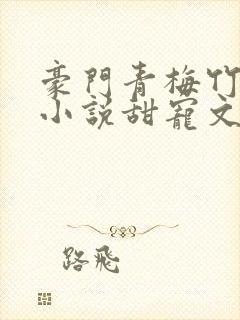 豪門青梅竹
小說甜寵文
路飛